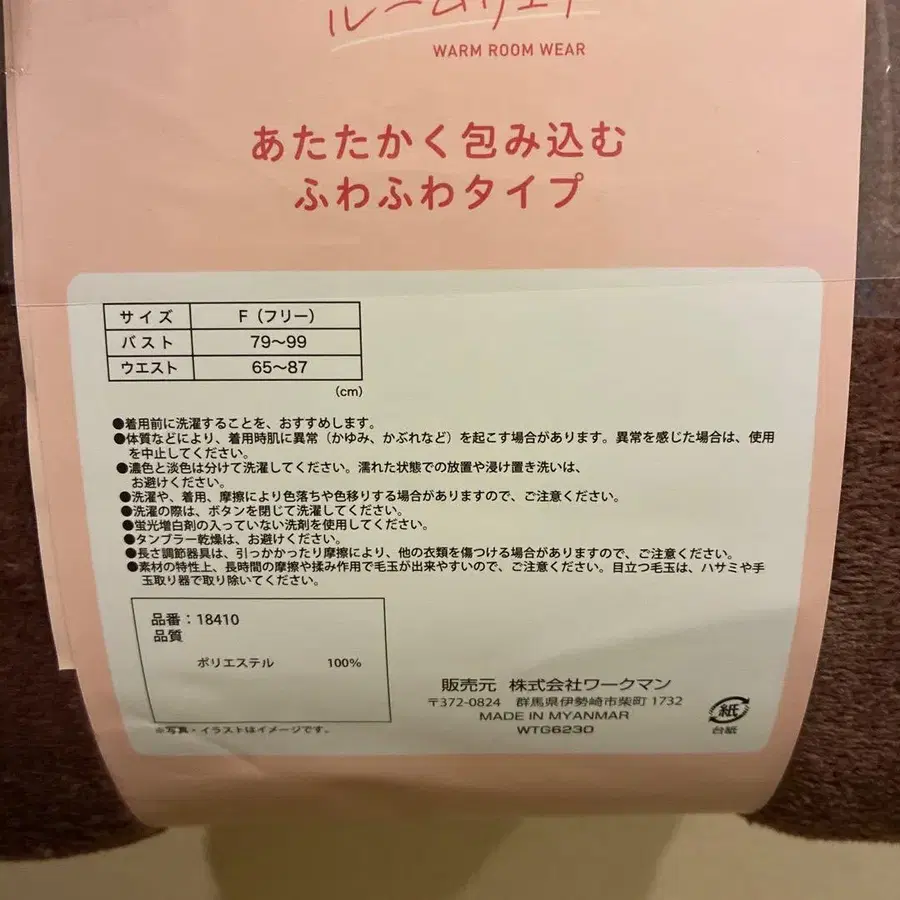 ルームウェア
WARM ROOM WEAR
あたたかく包み込む
ふわふわタイプ
サイズ F(フリー)
バスト 79〜99
ウエスト 65〜87
(cm)
●着用前に洗濯することを、おすすめします。
●体質などにより、着用時肌に異常(かゆみ、かぶれなど)を起こす場合があります。異常を感じた場合は、使用
を中止してください。
●濃色と淡色は分けて洗濯してください。濡れた状態での放置や浸け置き洗いは、
お避けください。
●洗濯や、着用、摩擦により色落ちや色移りする場合がありますので、ご注意ください。
●洗濯の際は、ボタンを閉じて洗濯してください。
●蛍光増白剤の入っていない洗剤を使用してください。
●タンブラー乾燥は、お避けください。
●長さ調節器具は、引っかかったり摩擦により、他の衣類を傷つける場合がありますので、ご注意ください。
●素材の特性上、長時間の摩擦や揉み作用で毛玉が出来やすいので、ご注意ください。目立つ毛玉は、ハサミや手
玉取り器で取り除いてください。
品番:18410
品質
ポリエステル 100%
※写真・イラストはイメージです。
販売元 株式会社ワークマン
〒372-0824 群馬県伊勢崎市柴町1732
MADE IN MYANMAR
WTG6230
紙
台紙